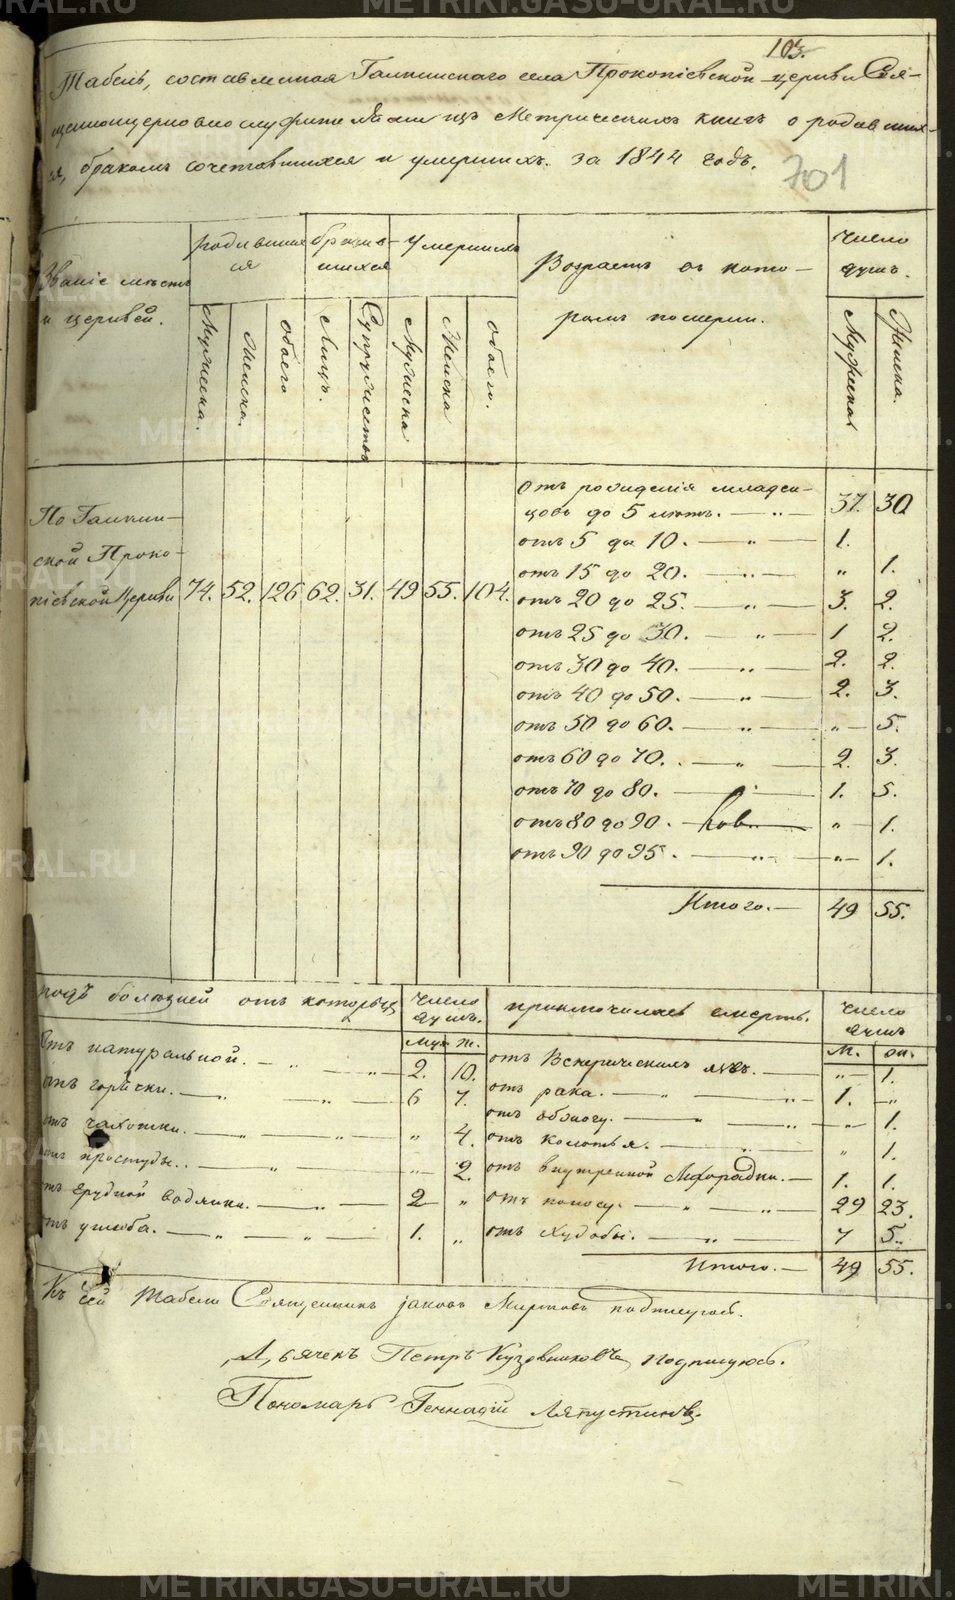 103.
Табель, составленная Галкинскаго села Прокопіевской церкви Свя-
щенноцерковнослужителями изъ Метрическихъ книгъ о родивших-
ся, бракомъ сочетавшихся и умершихъ. за 1844 годъ.
701
Званіе мѣстъ и церквей.
родившихся
бракившихся
умершихъ
Возрастъ въ кото-
ромъ померли.
Число душъ.
Мужеска. Женска. обоего Лицъ. Супружествъ Мужеска Женска обоего. Мужеска Женска.
По Галкин-
ской Проко-
піевской Церкви 74. 52. 126 62. 31. 49 55. 104.
Отъ рожденія младен-
цовъ до 5 лѣтъ. — „ — 37. 30
отъ 5 до 10. — „ — 1.
отъ 15 до 20. — „ — „ 1.
отъ 20 до 25. — „ — 3. 2.
отъ 25 до 30. — „ — 1 2.
отъ 30 до 40. — „ — 2. 2.
отъ 40 до 50. — „ — 2. 3.
отъ 50 до 60. — „ — „ 5.
отъ 60 до 70. — „ — 2. 3.
отъ 70 до 80. — „ — 1. 5.
отъ 80 до 90. — „ 1.
отъ 90 до 95. — „ — „ 1.
Итого. — 49 55.
родъ болѣзней отъ которыхъ Число душъ. приключилась смерть. Число душъ
Муж ж. М. ж.
Отъ натуральной. — „ — „ — 2. 10.
отъ горячки. — „ — „ — 6 7.
отъ чахотки. — „ — „ — „ 4.
отъ простуды. — „ — „ 2.
отъ грудной водянки. — „ — 2 „
отъ ушиба. — „ — „ — 1. „
отъ — „ 1.
отъ рака. — „ — „ 1. „
отъ — „ — „ „ 1.
отъ колотья. — „ „ 1.
отъ внутренной лихорадки. — 1. 1.
отъ поносу. — „ — „ — 29 23.
отъ худобы. — „ — 7 5.
Итого. — 49 55.
Къ сей Табели Священникъ Іаковъ подписуюсь.
Дьячекъ Петръ Кузовниковъ подписуюсь.
Пономарь Геннадій Ляпустинъ.
METRIKI.GASU-URAL.RU